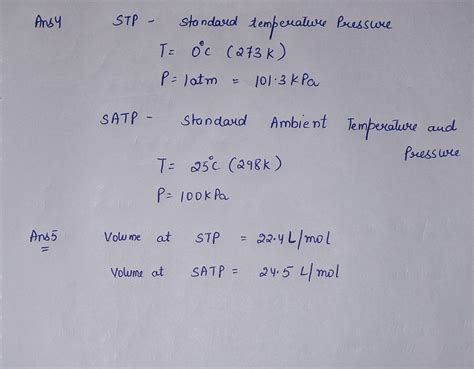 Ans4 STP - Standard temperature Pressure
T= 0°C (273K)
P= 1atm = 101.3kPa
SATP - Standard Ambient Temperature and Pressure
T= 25°C (298K)
P= 100kPa
Ans5 Volume at STP = 22.4L/mol
Volume at SATP = 24.5 L/mol